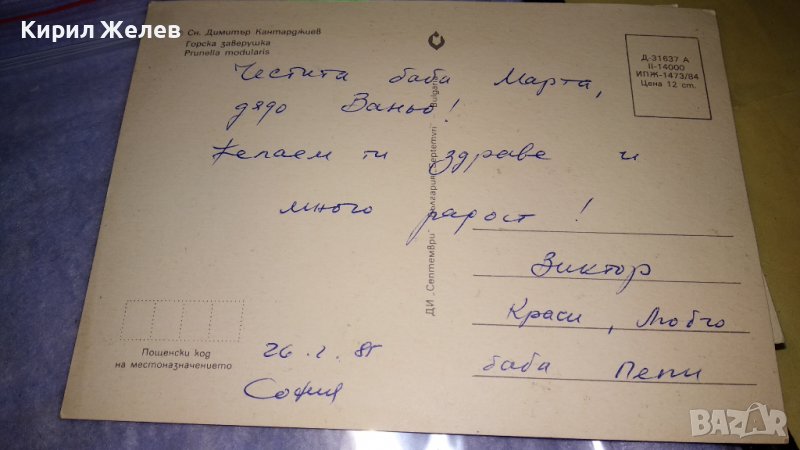 Кирил Желев
Сн. Димитър Кантарджиев
Горска заверушка
Prunella modularis
Д-31637 А
II-14000
ИПЖ-1473/84
Цена 12 ст.
Честита баба Марта,
дядо Ваньо!
Желаем ти здраве и
много радост!
ДИ „Септември“ България „Septemvri“ Bulgaria
Виктор
Краси, Любчо
баба Пепи
Пощенски код
на местоназначението
26.2.85
София
BAZAR